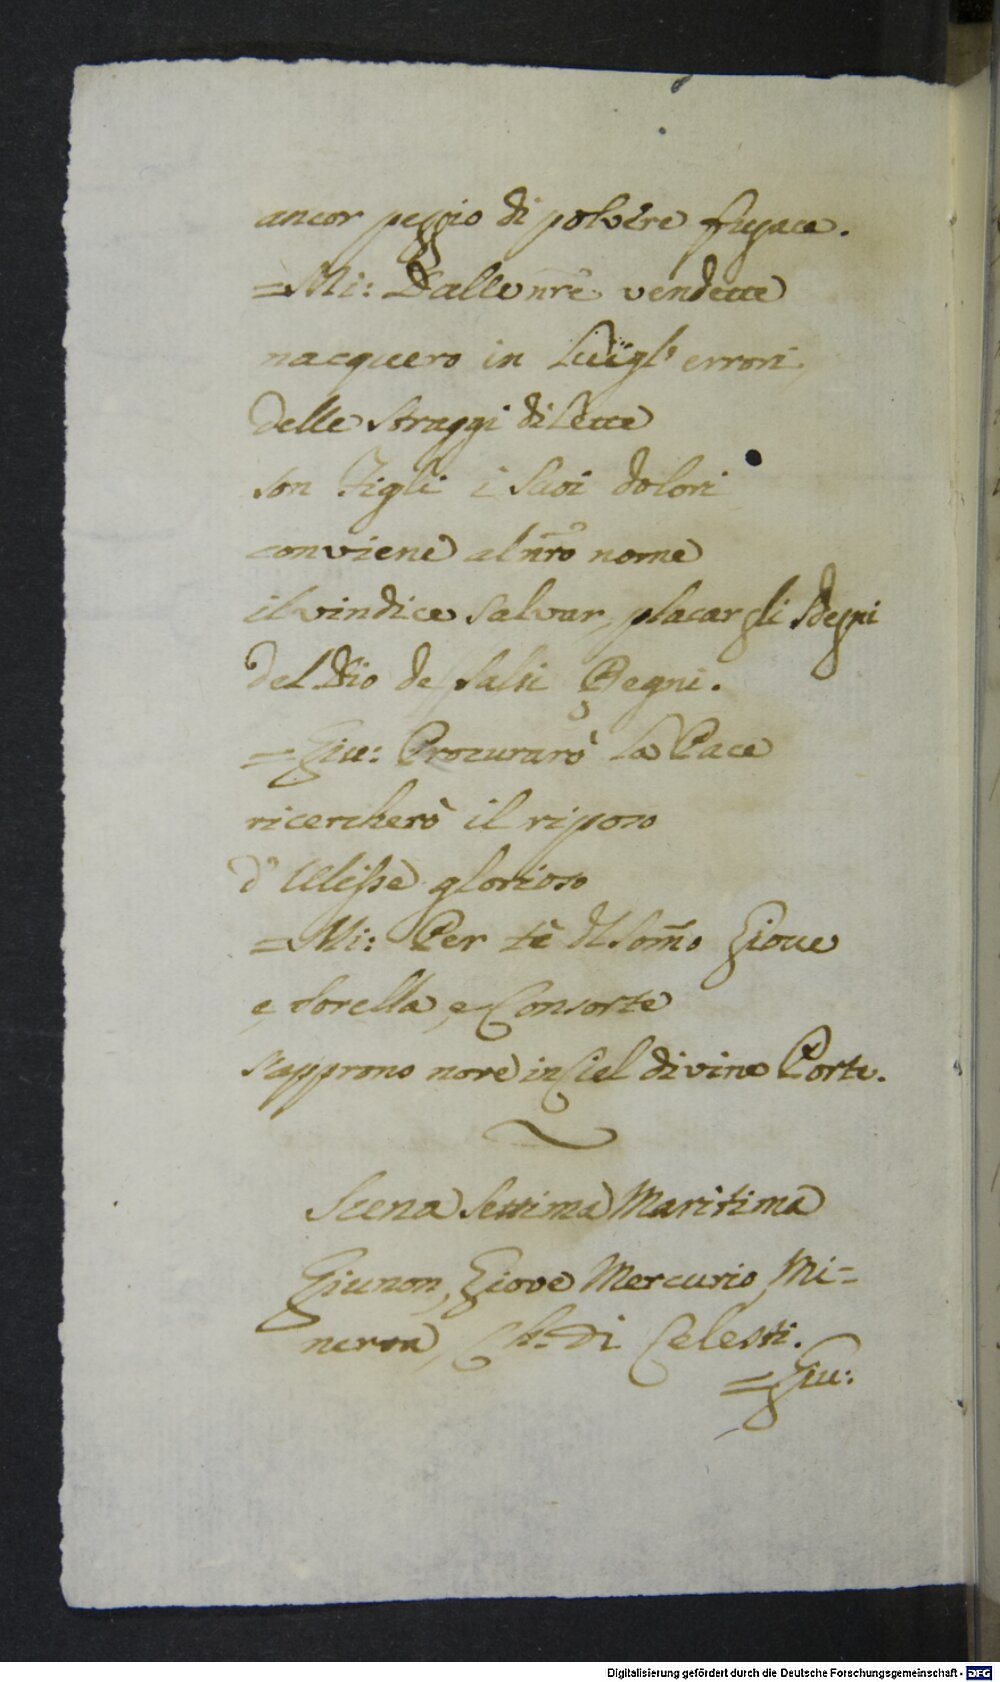 ancor peggio di polvere fugace.
=Mi: Dalle nr̃e vendette
nacquero in Lui gl' errori,
delle straggi dilette
son Figli i suoi dolori
conviene al nr̃o nome
il vindice salvar, placar gli sdegni
del Dio de salsi Regni.
=Giu: Procurarò la Pace
ricercherò il riposo
d' Ulisse glorioso
=Mi: Per tè del som̃o Giove
e, sorella, e Consorte
s'approno nove in Ciel divine Porte.
Scena settima Maritima
Giunon, Giove Mercurio, Mi=
nerva, Ch. di Celesti.
=Giu:
Digitalisierung gefördert durch die Deutsche Forschungsgemeinschaft - DFG